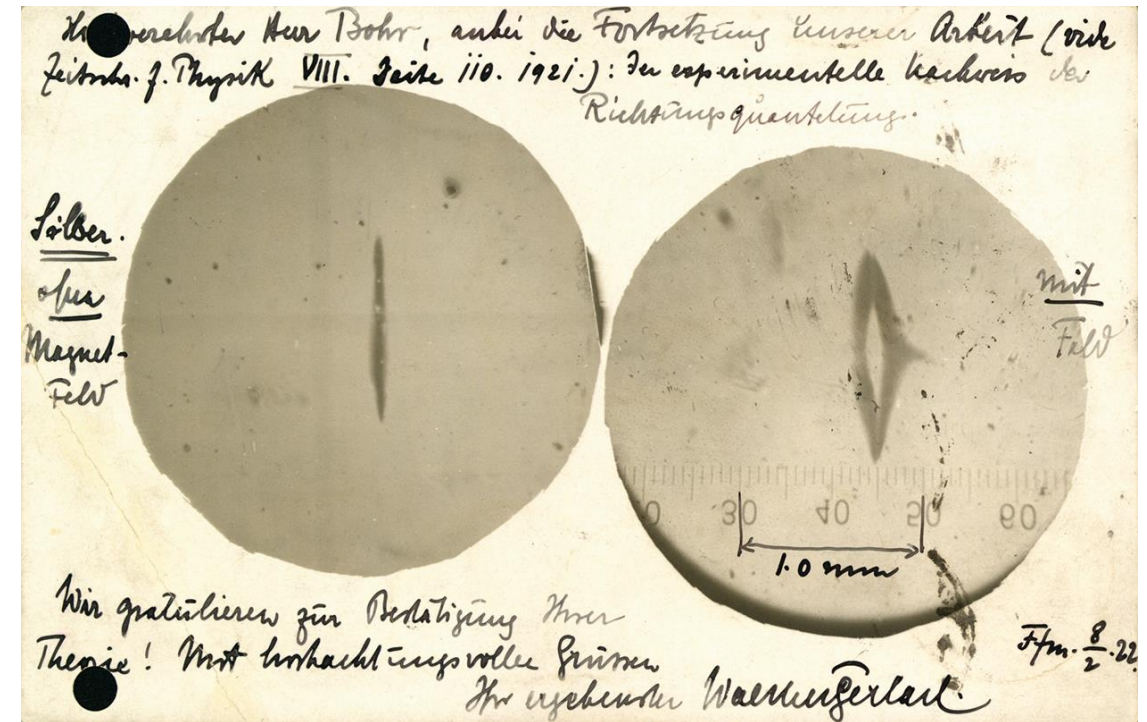 Hochverehrter Herr Bohr, anbei die Fortsetzung unserer Arbeit (vide
Zeitschr. f. Physik VIII. Seite 110. 1921.): Der experimentelle Nachweis der
Richtungsquantelung.
Silber.
ohne
Magnet-
Feld
mit
Feld
30 40 50 60
1.0 mm
Wir gratulieren zur Bestätigung Ihrer
Theorie! Mit hochachtungsvollen Grüssen
Ihr ergebenster Walther Gerlach.
Ffm. 8/2. 22